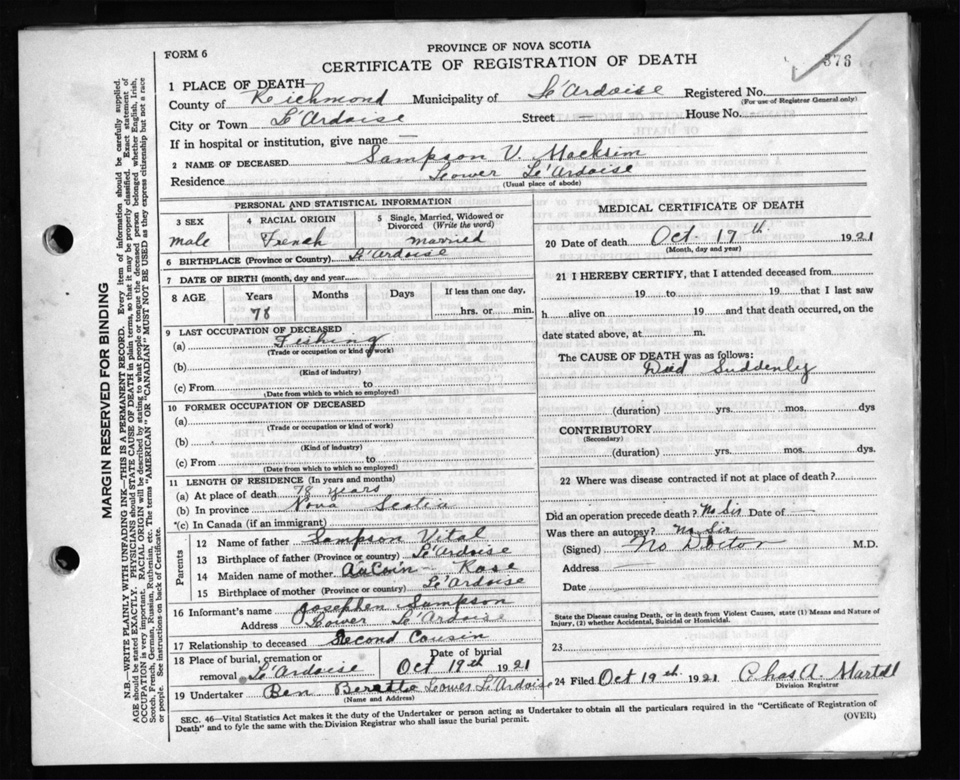 FORM 6
PROVINCE OF NOVA SCOTIA
CERTIFICATE OF REGISTRATION OF DEATH
376
1 PLACE OF DEATH
County of Richmond Municipality of L'Ardoise Registered No.
(For use of Registrar General only)
City or Town L'Ardoise Street — House No.
If in hospital or institution, give name —
2 NAME OF DECEASED Sampson V.
Residence Lower L'Ardoise
(Usual place of abode)
PERSONAL AND STATISTICAL INFORMATION
3 SEX 4 RACIAL ORIGIN 5 Single, Married, Widowed or Divorced (Write the word)
male French married
6 BIRTHPLACE (Province or Country) L'Ardoise
7 DATE OF BIRTH (month, day and year
8 AGE Years Months Days If less than one day,
78 hrs. or min.
9 LAST OCCUPATION OF DECEASED
(a) Fishing
(Trade or occupation or kind of work)
(b)
(Kind of industry)
(c) From to
(Date from which to which so employed)
10 FORMER OCCUPATION OF DECEASED
(a)
(Trade or occupation or kind of work)
(b)
(Kind of industry)
(c) From to
(Date from which to which so employed)
11 LENGTH OF RESIDENCE (In years and months)
(a) At place of death 78 years
(b) In province Nova Scotia
*(c) In Canada (if an immigrant)
Parents
12 Name of father Sampson Vital
13 Birthplace of father (Province or country) L'Ardoise
14 Maiden name of mother AuCoin — Rose
15 Birthplace of mother (Province or country) L'Ardoise
16 Informant's name Josephen Sampson
Address Lower L'Ardoise
17 Relationship to deceased Second Cousin
18 Place of burial, cremation or removal L'Ardoise Date of burial Oct 19th 1921
19 Undertaker Ben Lower L'Ardoise
(Name and Address)
MEDICAL CERTIFICATE OF DEATH
20 Date of death Oct. 17th 1921
(Month, day and year)
21 I HEREBY CERTIFY, that I attended deceased from
19 to 19 that I last saw
h alive on 19 and that death occurred, on the
date stated above, at m.
The CAUSE OF DEATH was as follows:
Died Suddenly
(duration) yrs. mos. dys
CONTRIBUTORY
(Secondary)
(duration) yrs. mos. dys.
22 Where was disease contracted if not at place of death?
Did an operation precede death? No Sir Date of —
Was there an autopsy? No Sir
(Signed) No Doctor M.D.
Address
Date
State the Disease causing Death, or in death from Violent Causes, state (1) Means and Nature of
Injury, (2) whether Accidental, Suicidal or Homicidal.
23
24 Filed Oct 19th 1921 Chas A. Martell
Division Registrar
SEC. 46—Vital Statistics Act makes it the duty of the Undertaker or person acting as Undertaker to obtain all the particulars required in the "Certificate of Registration of
Death" and to fyle the same with the Division Registrar who shall issue the burial permit.
(OVER)
MARGIN RESERVED FOR BINDING
N.B.—WRITE PLAINLY WITH UNFADING INK—THIS IS A PERMANENT RECORD. Every item of information should be carefully supplied.
AGE should be stated EXACTLY. PHYSICIANS should STATE CAUSE OF DEATH in plain terms, so that it may be properly classified. Exact statement of
OCCUPATION is very important. RACIAL ORIGIN will be described by stating to what people or tongue the deceased person belonged whether English, Irish,
Scotch, French, German, Russian, Ruthenian, etc. The terms "AMERICAN" OR "CANADIAN" MUST NOT BE USED as they express citizenship but not a race
or people. See instructions on back of Certificate.